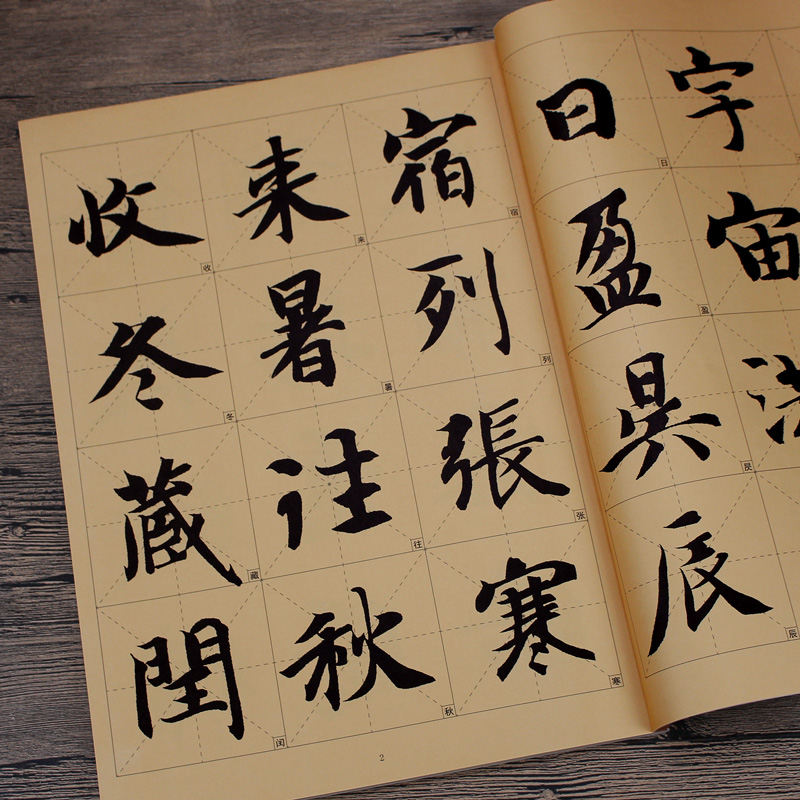 宇宙洪
日盈昃辰
日盈昃辰
宿列張寒
宿列张寒
来暑往秋
来暑往秋
收冬藏閏
收冬藏闰
2